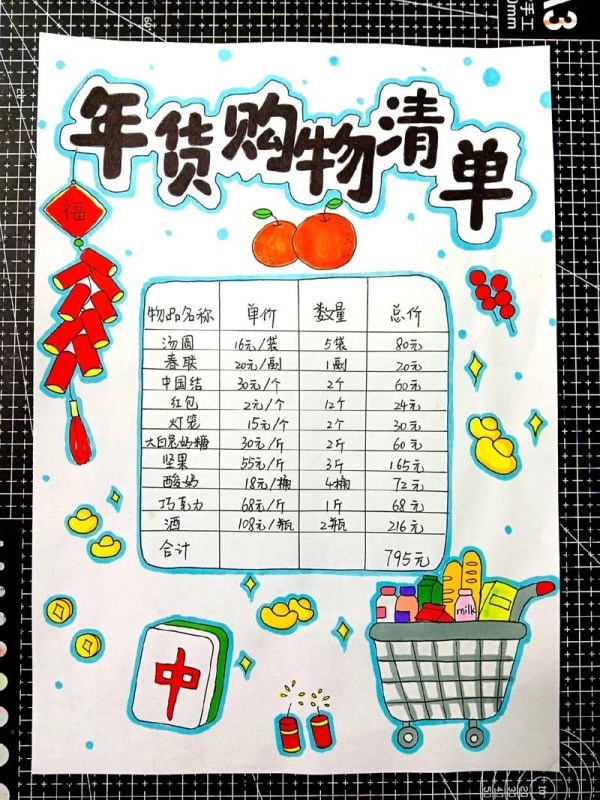 年货购物清单
福
物品名称 单价 数量 总价
汤圆 16元/袋 5袋 80元
春联 20元/副 1副 20元
中国结 30元/个 2个 60元
红包 2元/个 12个 24元
灯笼 15元/个 2个 30元
大白兔奶糖 30元/斤 2斤 60元
坚果 55元/斤 3斤 165元
酸奶 18元/桶 4桶 72元
巧克力 68元/斤 1斤 68元
酒 108元/瓶 2瓶 216元
合计 795元
milk
中